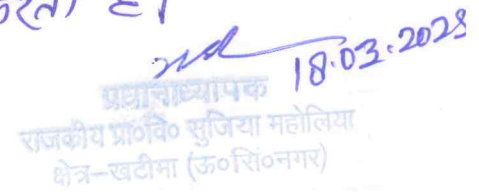 18.03.2023
प्रधानाध्यापक
राजकीय प्रा०वि० सुजिया महोलिया
क्षेत्र-खटीमा (ऊ०सिं०नगर)